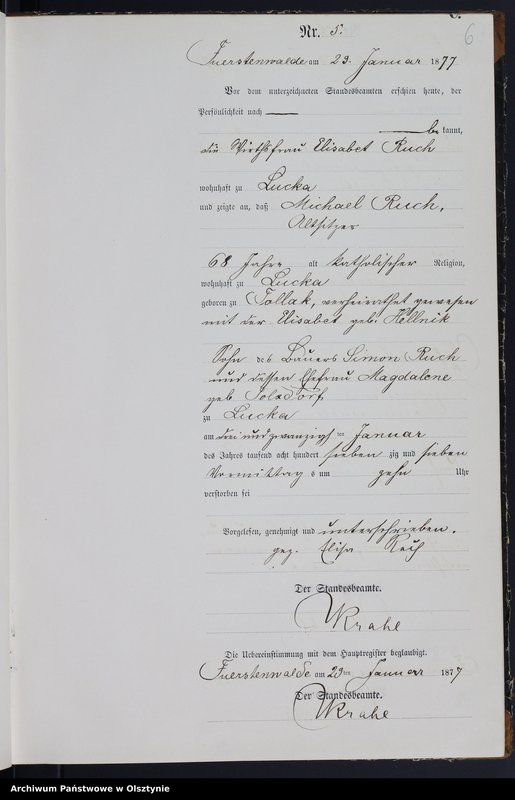 6
Nr. 5.
Fuerstenwalde am 23. Januar 1877
Vor dem unterzeichneten Standesbeamten erschien heute, der
Persönlichkeit nach
be kannt,
die Wirthsfrau Elisabet Ruch
wohnhaft zu Lucka
und zeigte an, daß Michael Ruch,
Altsitzer
68 Jahre alt katholischer Religion,
wohnhaft zu Lucka
geboren zu Tollak, verheirathet gewesen
mit der Elisabet geb. Hellnik
Sohn des Bauers Simon Ruch
und dessen Ehefrau Magdalene
geb.
zu Lucka
am drei und zwanzigsten Januar
des Jahres tausend acht hundert sieben zig und sieben
Vormittags um zehn Uhr
verstorben sei
Vorgelesen, genehmigt und unterschrieben.
gez. Elisa
Der Standesbeamte.
Krahe
Die Uebereinstimmung mit dem Hauptregister beglaubigt.
Fuerstenwalde am 23ten Januar 1877
Der Standesbeamte.
Krahe
Archiwum Państwowe w Olsztynie